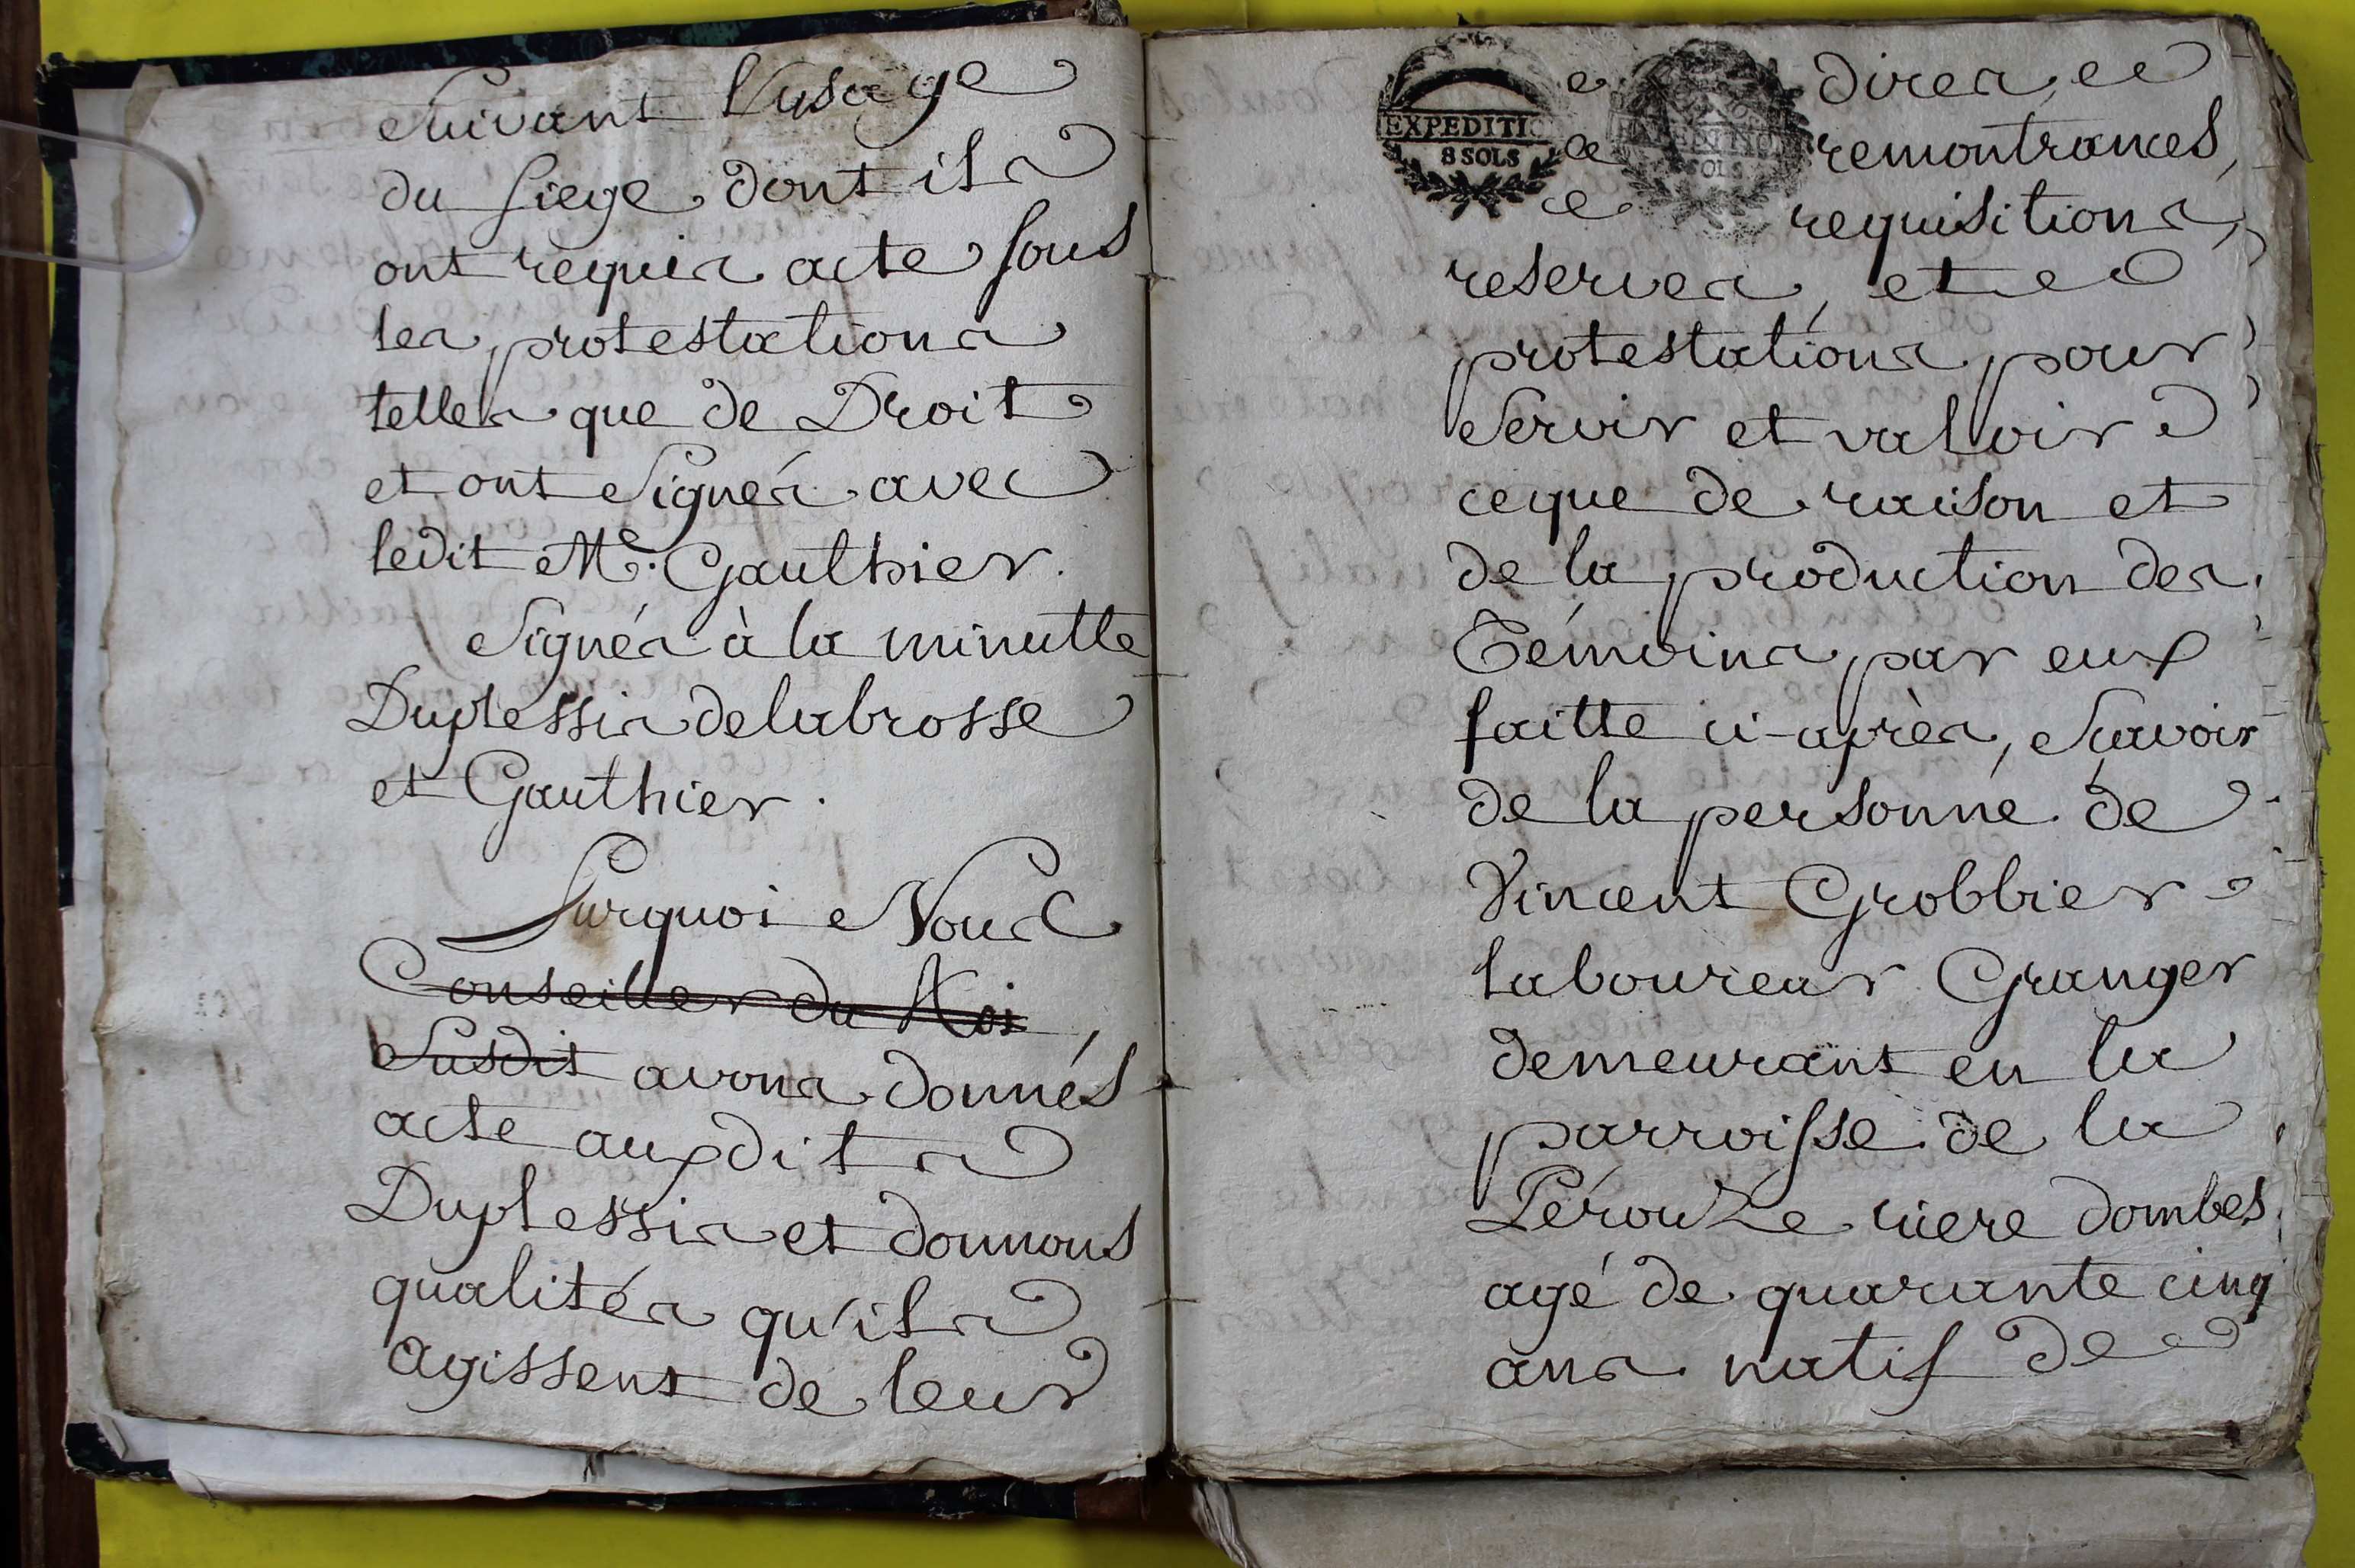 Suivant l'usage
du siege dont ils
ont requis acte sous
les protestations
telles que de Droit
et ont signés avec
ledit Me. Gauthier.
Signés à la minutte
Duplessis delabrosse
et Gauthier.
Surquoi Nous
Conseiller du Roi
Susdit avons donnés
acte auxdits
Duplessis et donnons
qualités qu'ils
agissent de leurs
EXPEDITIO
8 SOLS
SOLS
dires
remontrances,
requisitions,
reserves, et
protestations pour
servir et valloir
ceque de raison et
de la production des
Témoins par eux
faitte ci-après, scavoir
de la personne de
Vincent Grobbier
laboureur Granger
demeurant en la
parroisse de la
Pérouze riere dombes
agé de quarante cinq
ans natif de